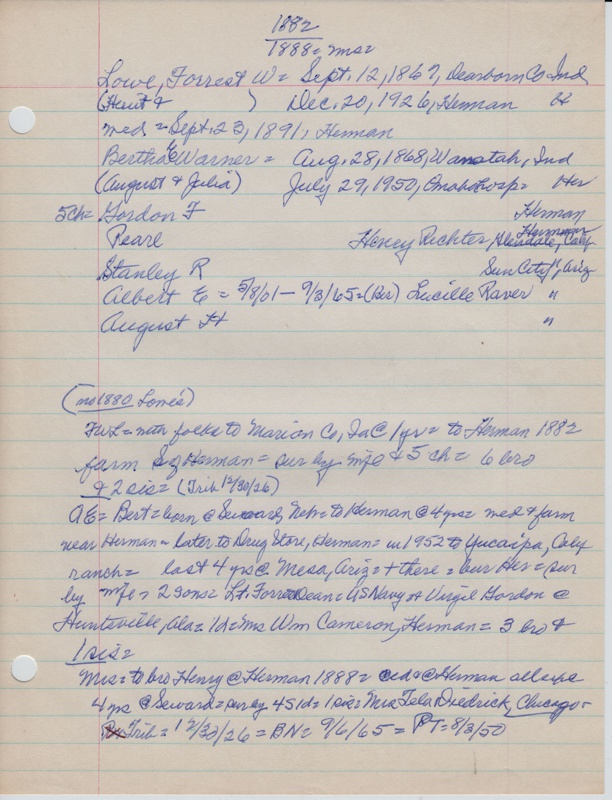 1882
1888 = Mrs =
Lowe, Forrest W = Sept. 12, 1867, Dearborn Co Ind
(Hunt & ) Dec. 20, 1926, Herman H
med = Sept. 23, 1891, Herman
Bertha E Warner = Aug. 28, 1868, Wanatah, Ind
(August & Julia) July 29, 1950, Omaha hosp = Her
5 ch = Gordon F Herman
Pearl Henry Richter, Glendale, Calif
Stanley R Sun City, Ariz
Albert E = 5/8/01 - 9/3/65 = (Ber) Lucille Raver "
August H "
(no 1880 Lowes)
FWL = with folks to Marion Co, Ia @ 1 yr = to Herman 1882
farm S of Herman = sur by wife & 5 ch = 6 bro
& 2 sis = (Trib 12/30/26)
AE = Bert = born @ Seward, Neb = to Herman @ 4 yrs = med & farm
near Herman = later to Drug Store, Herman = in 1952 to Yucaipa, Calif
ranch = last 4 yrs @ Mesa, Ariz = + there = bur Her = sur
by wife, 2 sons = Lt. Forrest Dean = US Navy & Virgil Gordon @
Huntsville, Ala = 1 d = Ms Wm Cameron, Herman = 3 bro &
1 sis =
Mrs = to bro Henry @ Herman 1888 = @ Herman all exc
4 yrs @ Seward = sur by 4 S 1 d = 1 sis = Mrs Diedrick, Chicago -
Trib = 12/30/26 = BN = 9/6/65 = PT = 8/3/50